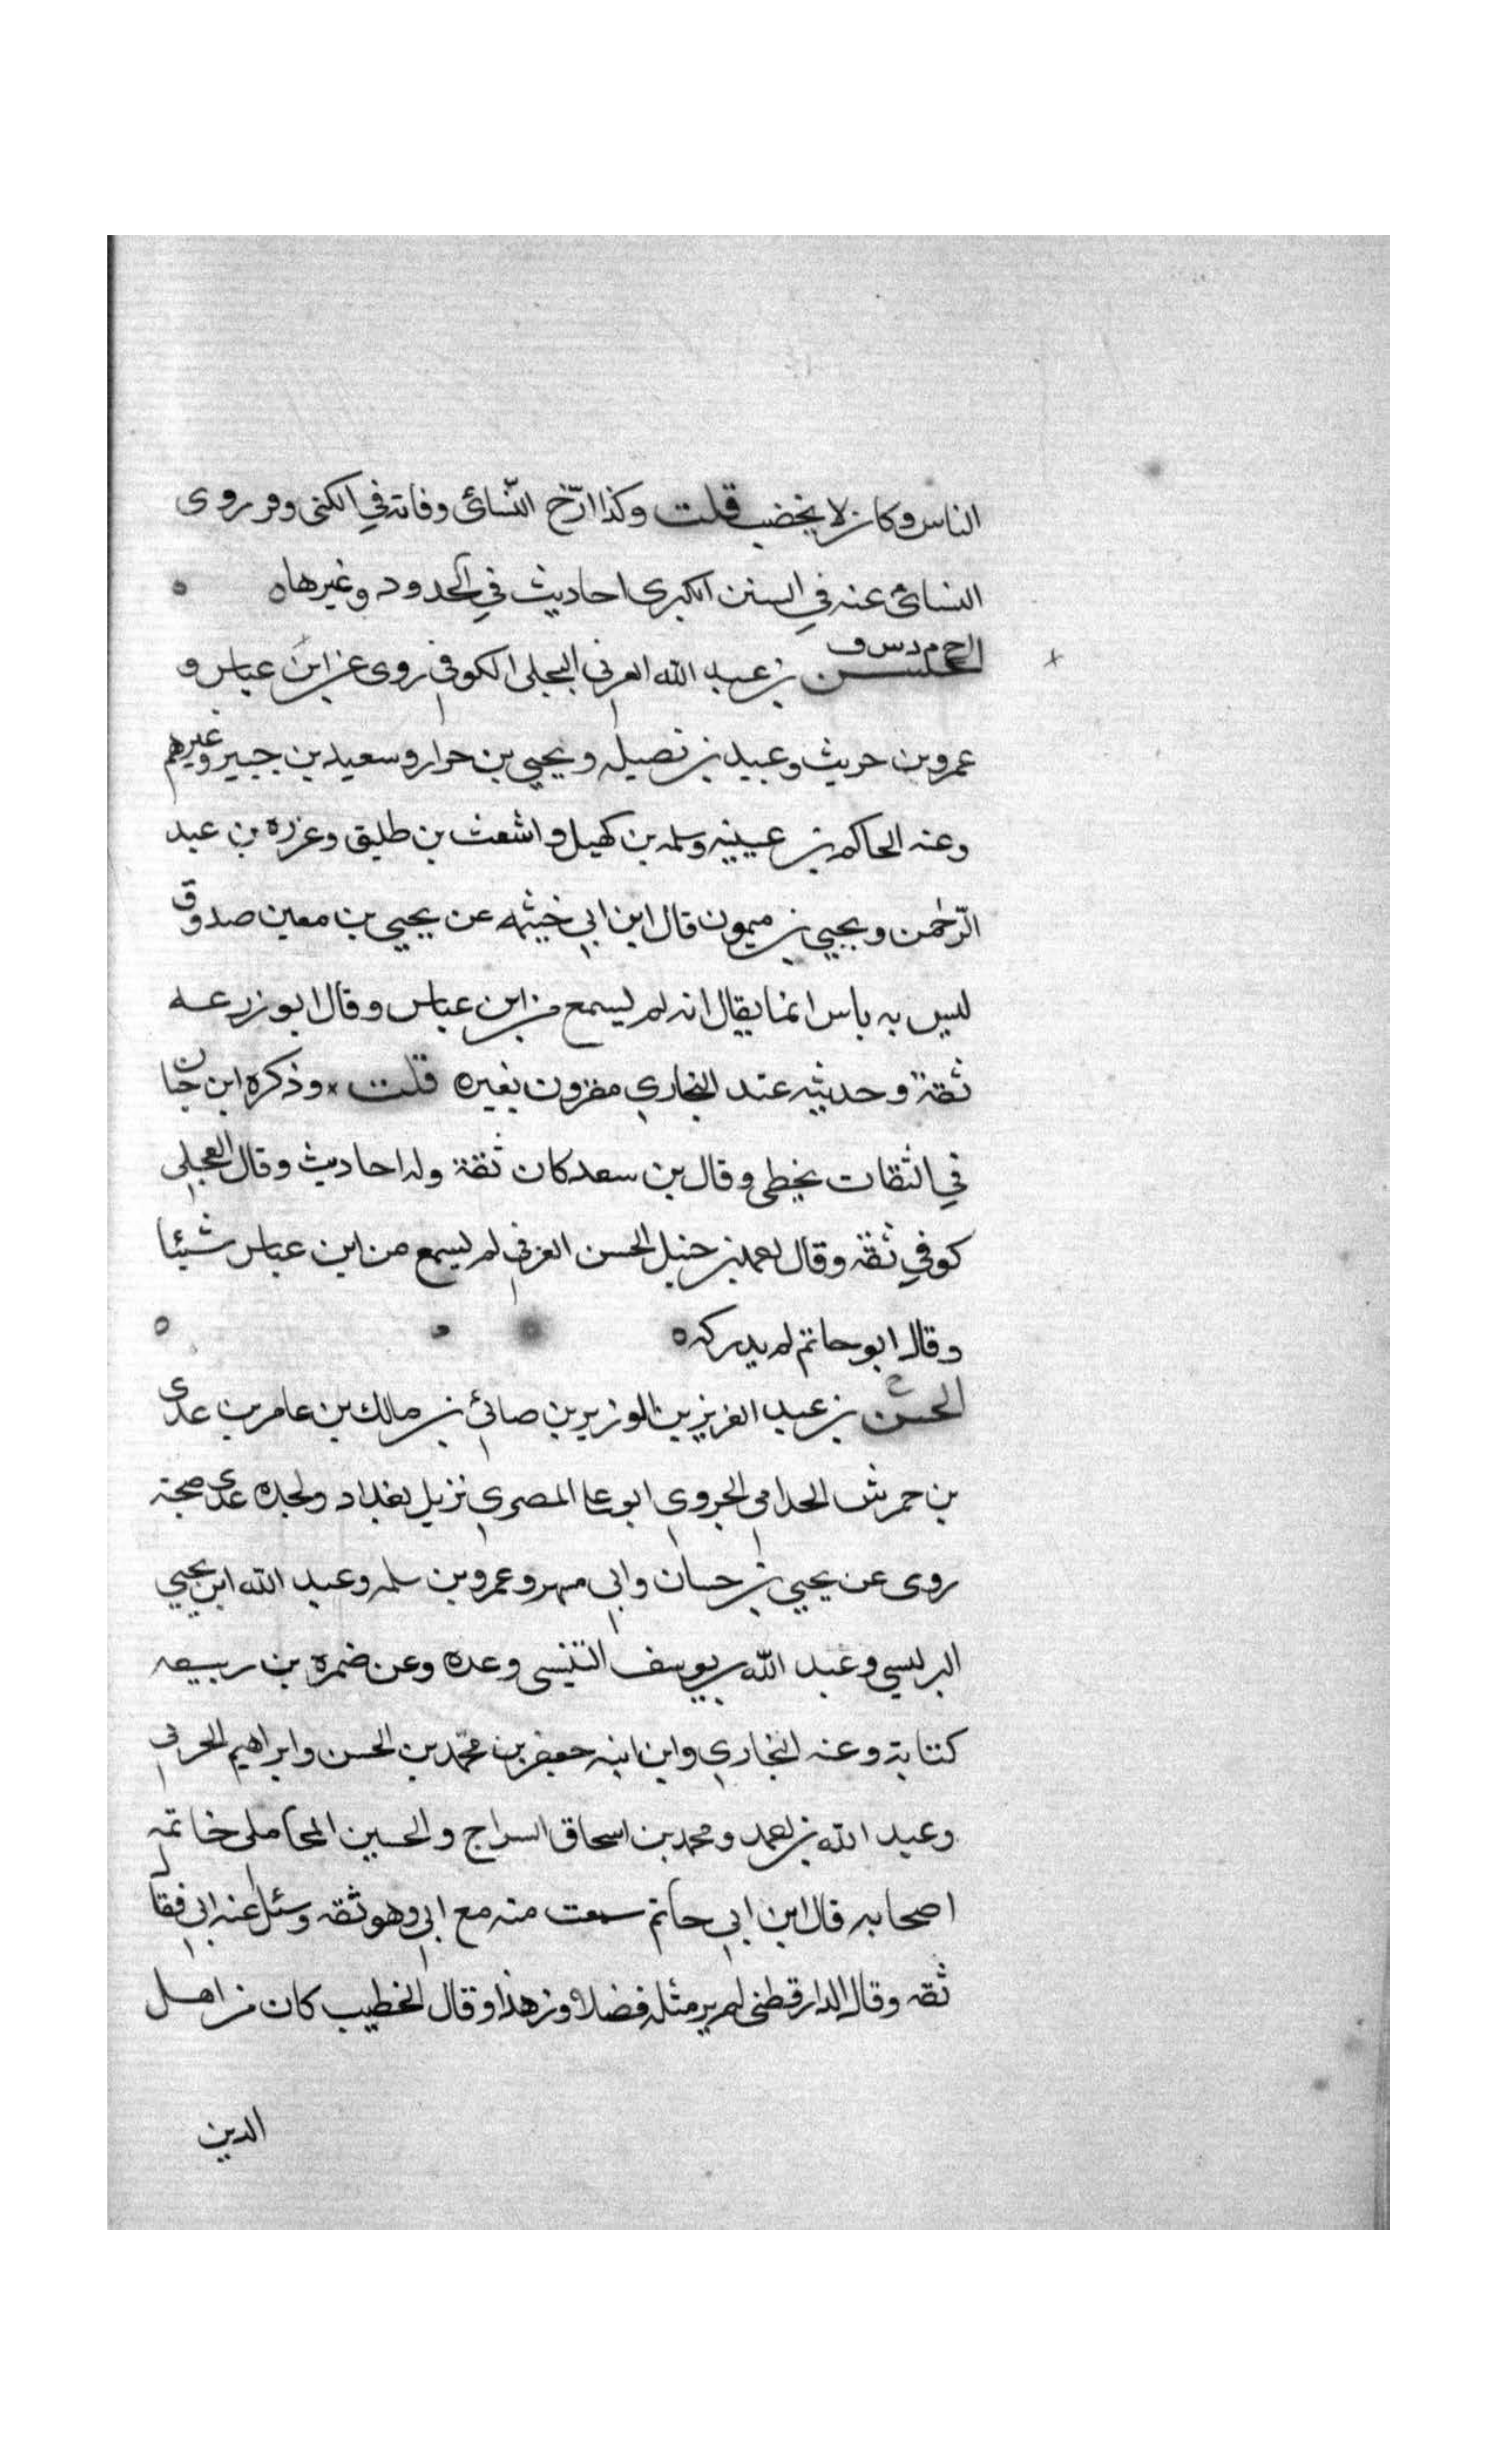 الناس وكان لا يخضب قلت وكذا ارّخ النّسائي وفاته في الكنى وقد روى
النسائي عنه في السنن الكبرى احاديث في الحدود وغيرها ه
خ م د س ق
الحسن بن عبد الله العرني البجلي الكوفي روى عن ابن عباس و
عمرو بن حريث وعبيد بن نصيله ويحيى بن حرار وسعيد بن جبير وغيرهم
وعنه الحاكم بن عيينه وسلمه بن كهيل واشعث بن طليق وعزره بن عبد
الرّحمن ويحيى بن ميمون قال ابن ابي خيثمه عن يحيى بن معين صدوق
ليس به باس انما يقال انه لم يسمع من ابن عباس وقال ابو زرعه
ثقة وحديثه عند البخاري مقرون بغيره قلت وذكره ابن حبان
في الثقات يخطي وقال بن سعد كان ثقة وله احاديث وقال العجلي
كوفي ثقة وقال احمد بن حنبل الحسن العرني لم يسمع من ابن عباس شيئا
وقال ابو حاتم لم يدركه ه
الحسن بن عبد العزيز بن الوزير بن صابئ بن مالك بن عامر بن عدى
بن حمرش الحدامي الجروي ابو عا المصري نزيل بغداد ولجده عدى صحبة
روى عن يحيي بن حسان وابي مسهر وعمرو بن سلمه وعبد الله ابن يحيي
البرلسي وعبد الله بن يوسف التنيسي وعده وعن ضمرة بن ربيعه
كتابة وعنه البخاري وابن ابنه جعفر بن محمّد بن الحسن وابراهيم الحربي
وعبد الله بن احمد ومحمد بن اسحاق السراج والحسين المحاملي خاتمة
اصحابه قال ابن ابي حاتم سمعت منه مع ابي وهو ثقه وسئل عنه ابي فقال
ثقه وقال الدارقطني لم ير مثله فضلا وزهدا وقال الخطيب كان من اهل
الدين